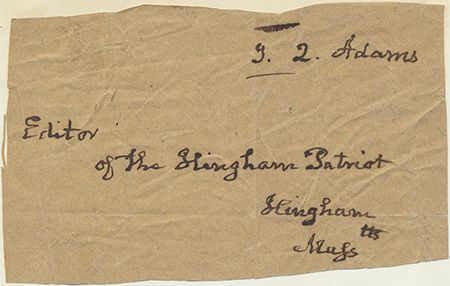 J. Q. Adams
Editor
of the Hingham Patriot
Hingham
Mass tts